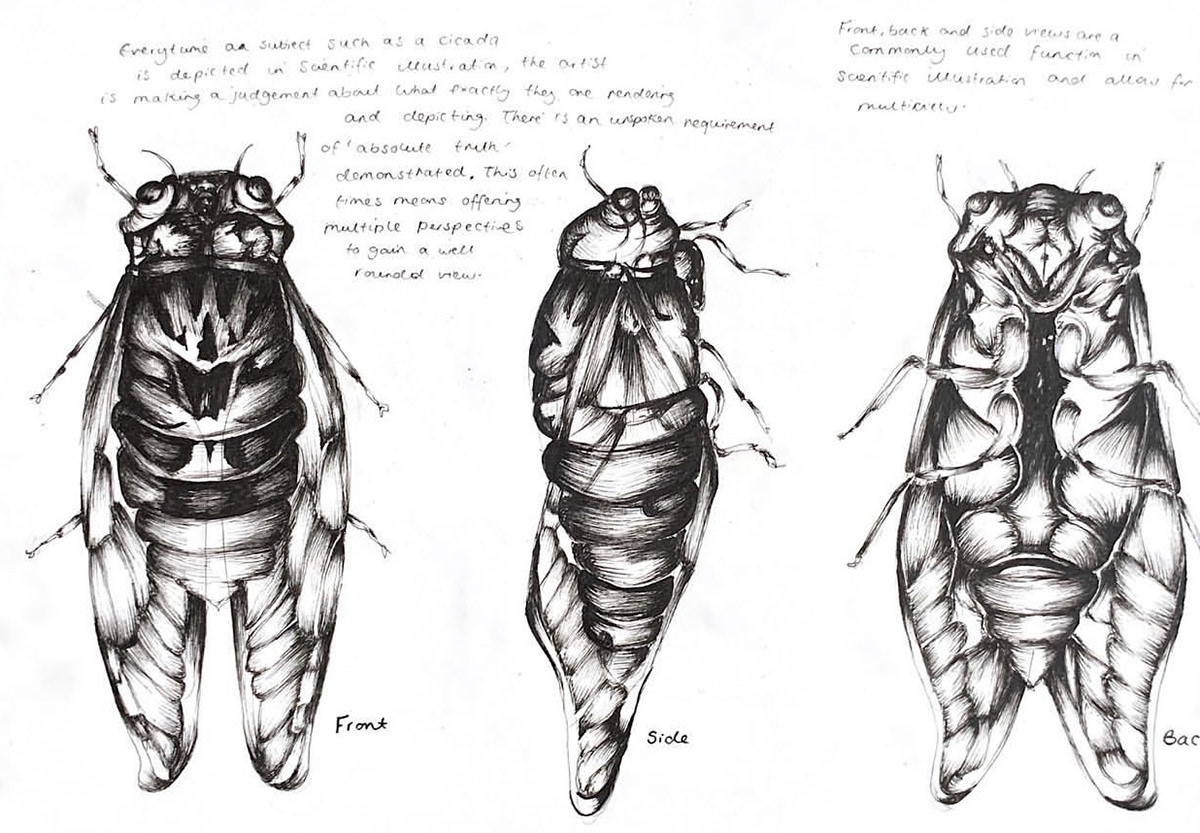 Everytime aa subject such as a cicada
is depicted in Scientific illustration, the artist
is making a judgement about what exactly they are rendering
and depicting. There is an unspoken requirement
of 'absolute truth'
demonstrated. This often
times means offering
multiple perspectives
to gain a well
rounded view.
Front, back and side views are a
commonly used function in
scientific illustration and allow for
Front
Side
Bac